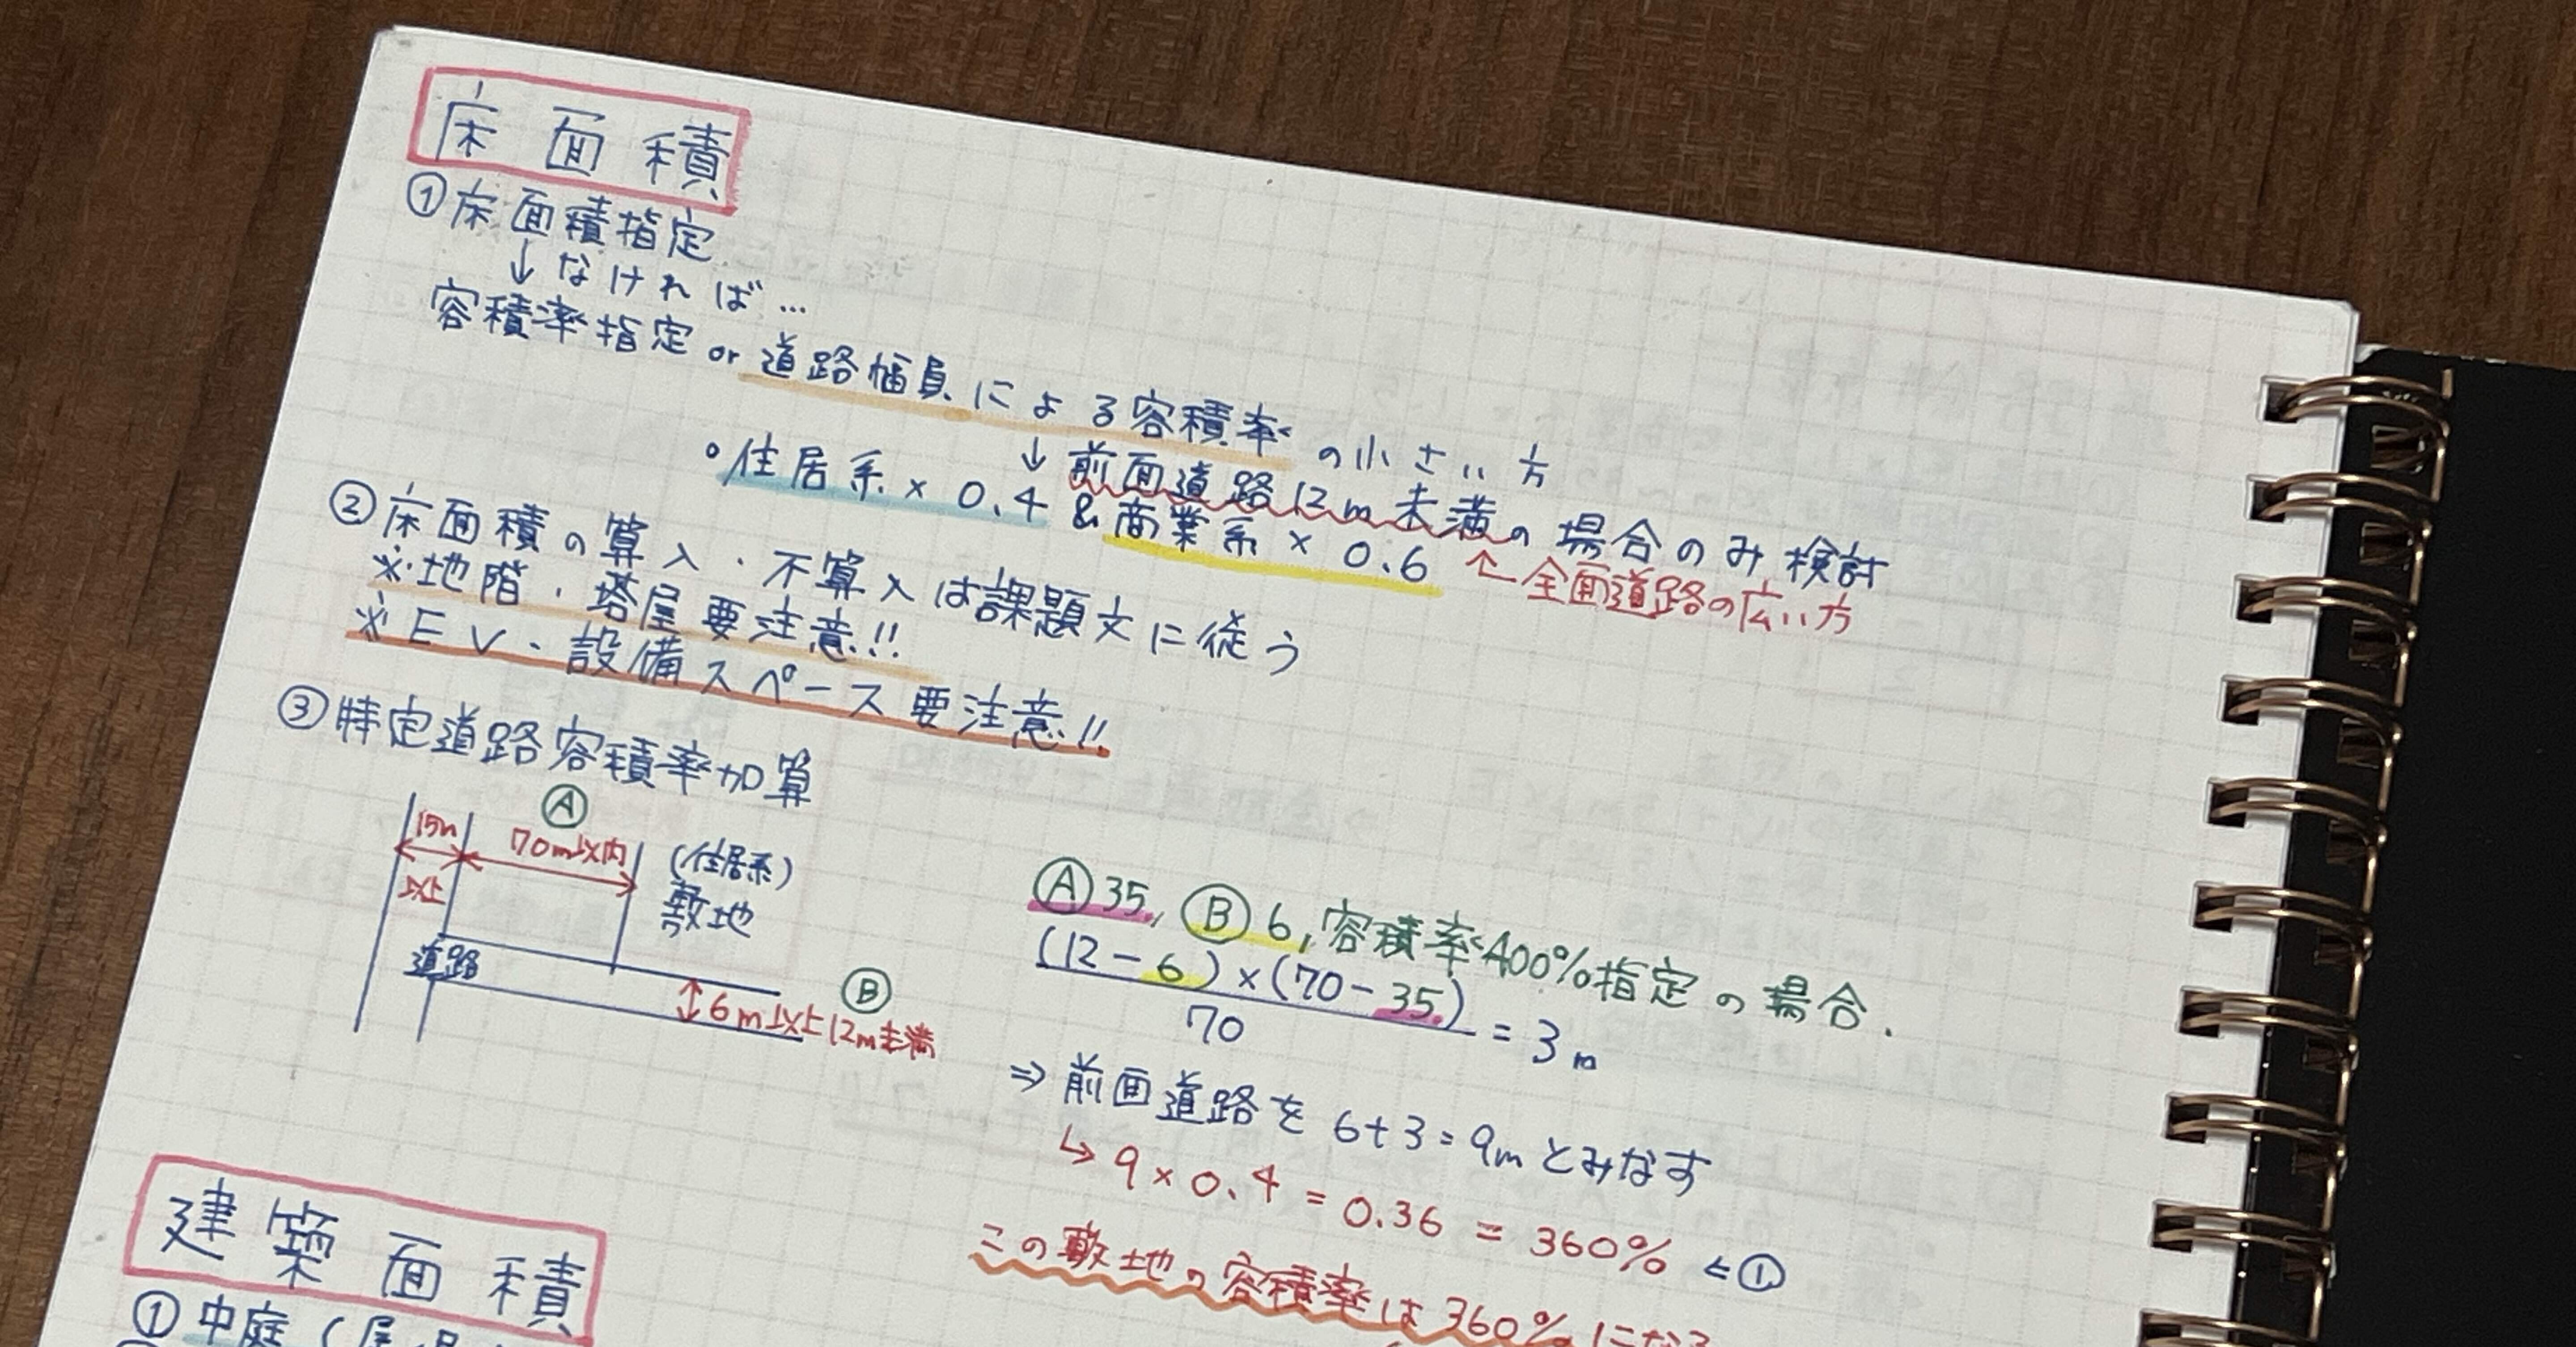 床面積
①床面積指定
↓なければ…
容積率指定 or 道路幅員による容積率の小さい方
↓前面道路12m未満の場合のみ検討
↑全面道路の広い方
・住居系×0.4 & 商業系×0.6
②床面積の算入・不算入は課題文に従う
※地階・塔屋要注意!!
※EV・設備スペース要注意!!
③特定道路容積率加算
Ⓐ
15m
以上
70m以内
(住居系)
敷地
道路
Ⓑ
6m以上12m未満
Ⓐ35, Ⓑ6, 容積率400%指定の場合.
(12-6)×(70-35)
70
=3m
⇒前面道路を6+3=9mとみなす
↳9×0.4=0.36=360% ⇐①
この敷地の容積率は360%になる
建築面積
①中庭(屋